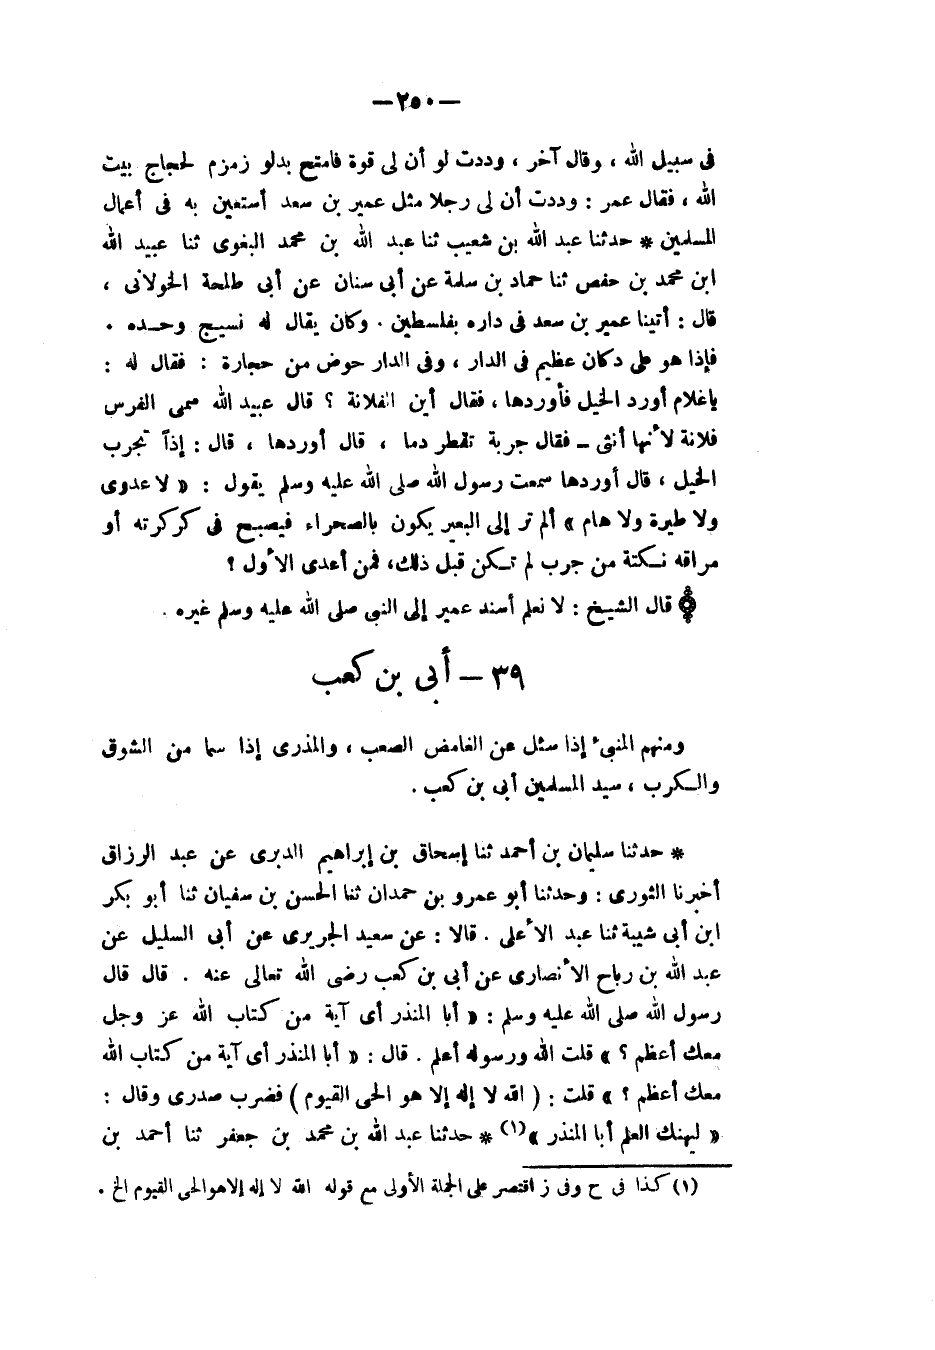 —٢٥٠—
فى سبيل الله ، وقال آخر ، وددت لو أن لى قوة فامتح بدلو زمزم لحجاج بيت
الله ، فقال عمر : وددت أن لى رجلا مثل عمير بن سعد أستعين به فى أعمال
المسلمين * حدثنا عبد الله بن شعيب ثنا عبد الله بن محمد البغوى ثنا عبيد الله
ابن محمد بن حفص ثنا حماد بن سلمة عن أبى سنان عن أبى طلحة الخولانى ،
قال : أتينا عمير بن سعد فى داره بفلسطين . وكان يقال له نسيج وحـده .
فإذا هو على دكان عظيم فى الدار ، وفى الدار حوض من حجارة : فقال له :
ياغلام أورد الخيل فأوردها ، فقال أين الفلانة ؟ قال عبيد الله سمى الفرس
فلانة لأنها أنثى ــ فقال جربة تقطر دما ، قال أوردها ، قال : إذاً تجرب
الخيل ، قال أوردها سمعت رسول الله صلى الله عليه وسلم يقول : « لا عدوى
ولا طيرة ولا هام » ألم تر إلى البعير يكون بالصحراء فيصبح فى كركرته أو
مراقه نـكتة من جرب لم تـكن قبل ذلك، فمن أعدى الأول ؟
قال الشيخ : لا نعلم أسند عمير إلى النبى صلى الله عليه وسلم غيره .
٣٩ — أبى بن كعب
ومنهم المنبىء إذا سئل عن الغامض الصعب ، والمذرى إذا سما من الشوق
والـكرب ، سيد المسلمين أبى بن كعب .
* حدثنا سليمان بن أحمد ثنا إسحاق بن إبراهيم الدبرى عن عبد الرزاق
أخبرنا الثورى : وحدثنا أبو عمرو بن حمدان ثنا الحسن بن سفيان ثنا أبو بكر
ابن أبى شيبة ثنا عبد الأعلى . قالا : عن سعيد الجريرى عن أبى السليل عن
عبد الله بن رباح الأنصارى عن أبى بن كعب رضى الله تعالى عنه . قال قال
رسول الله صلى الله عليه وسلم : « أبا المنذر أى آية من كتاب الله عز وجل
معك أعظم ؟ » قلت الله ورسوله أعلم . قال : « أبا المنذر أى آية من كتاب الله
معك أعظم ؟ » قلت : ( الله لا إله إلا هو الحى القيوم ) فضرب صدرى وقال :
« ليهنك العلم أبا المنذر »(١) * حدثنا عبد الله بن محمد بن جعفر ثنا أحمد بن
(١) كذا فى ح وفى ز اقتصر على الجملة الأولى مع قوله الله لا إله إلاهوالحى القيوم الخ .